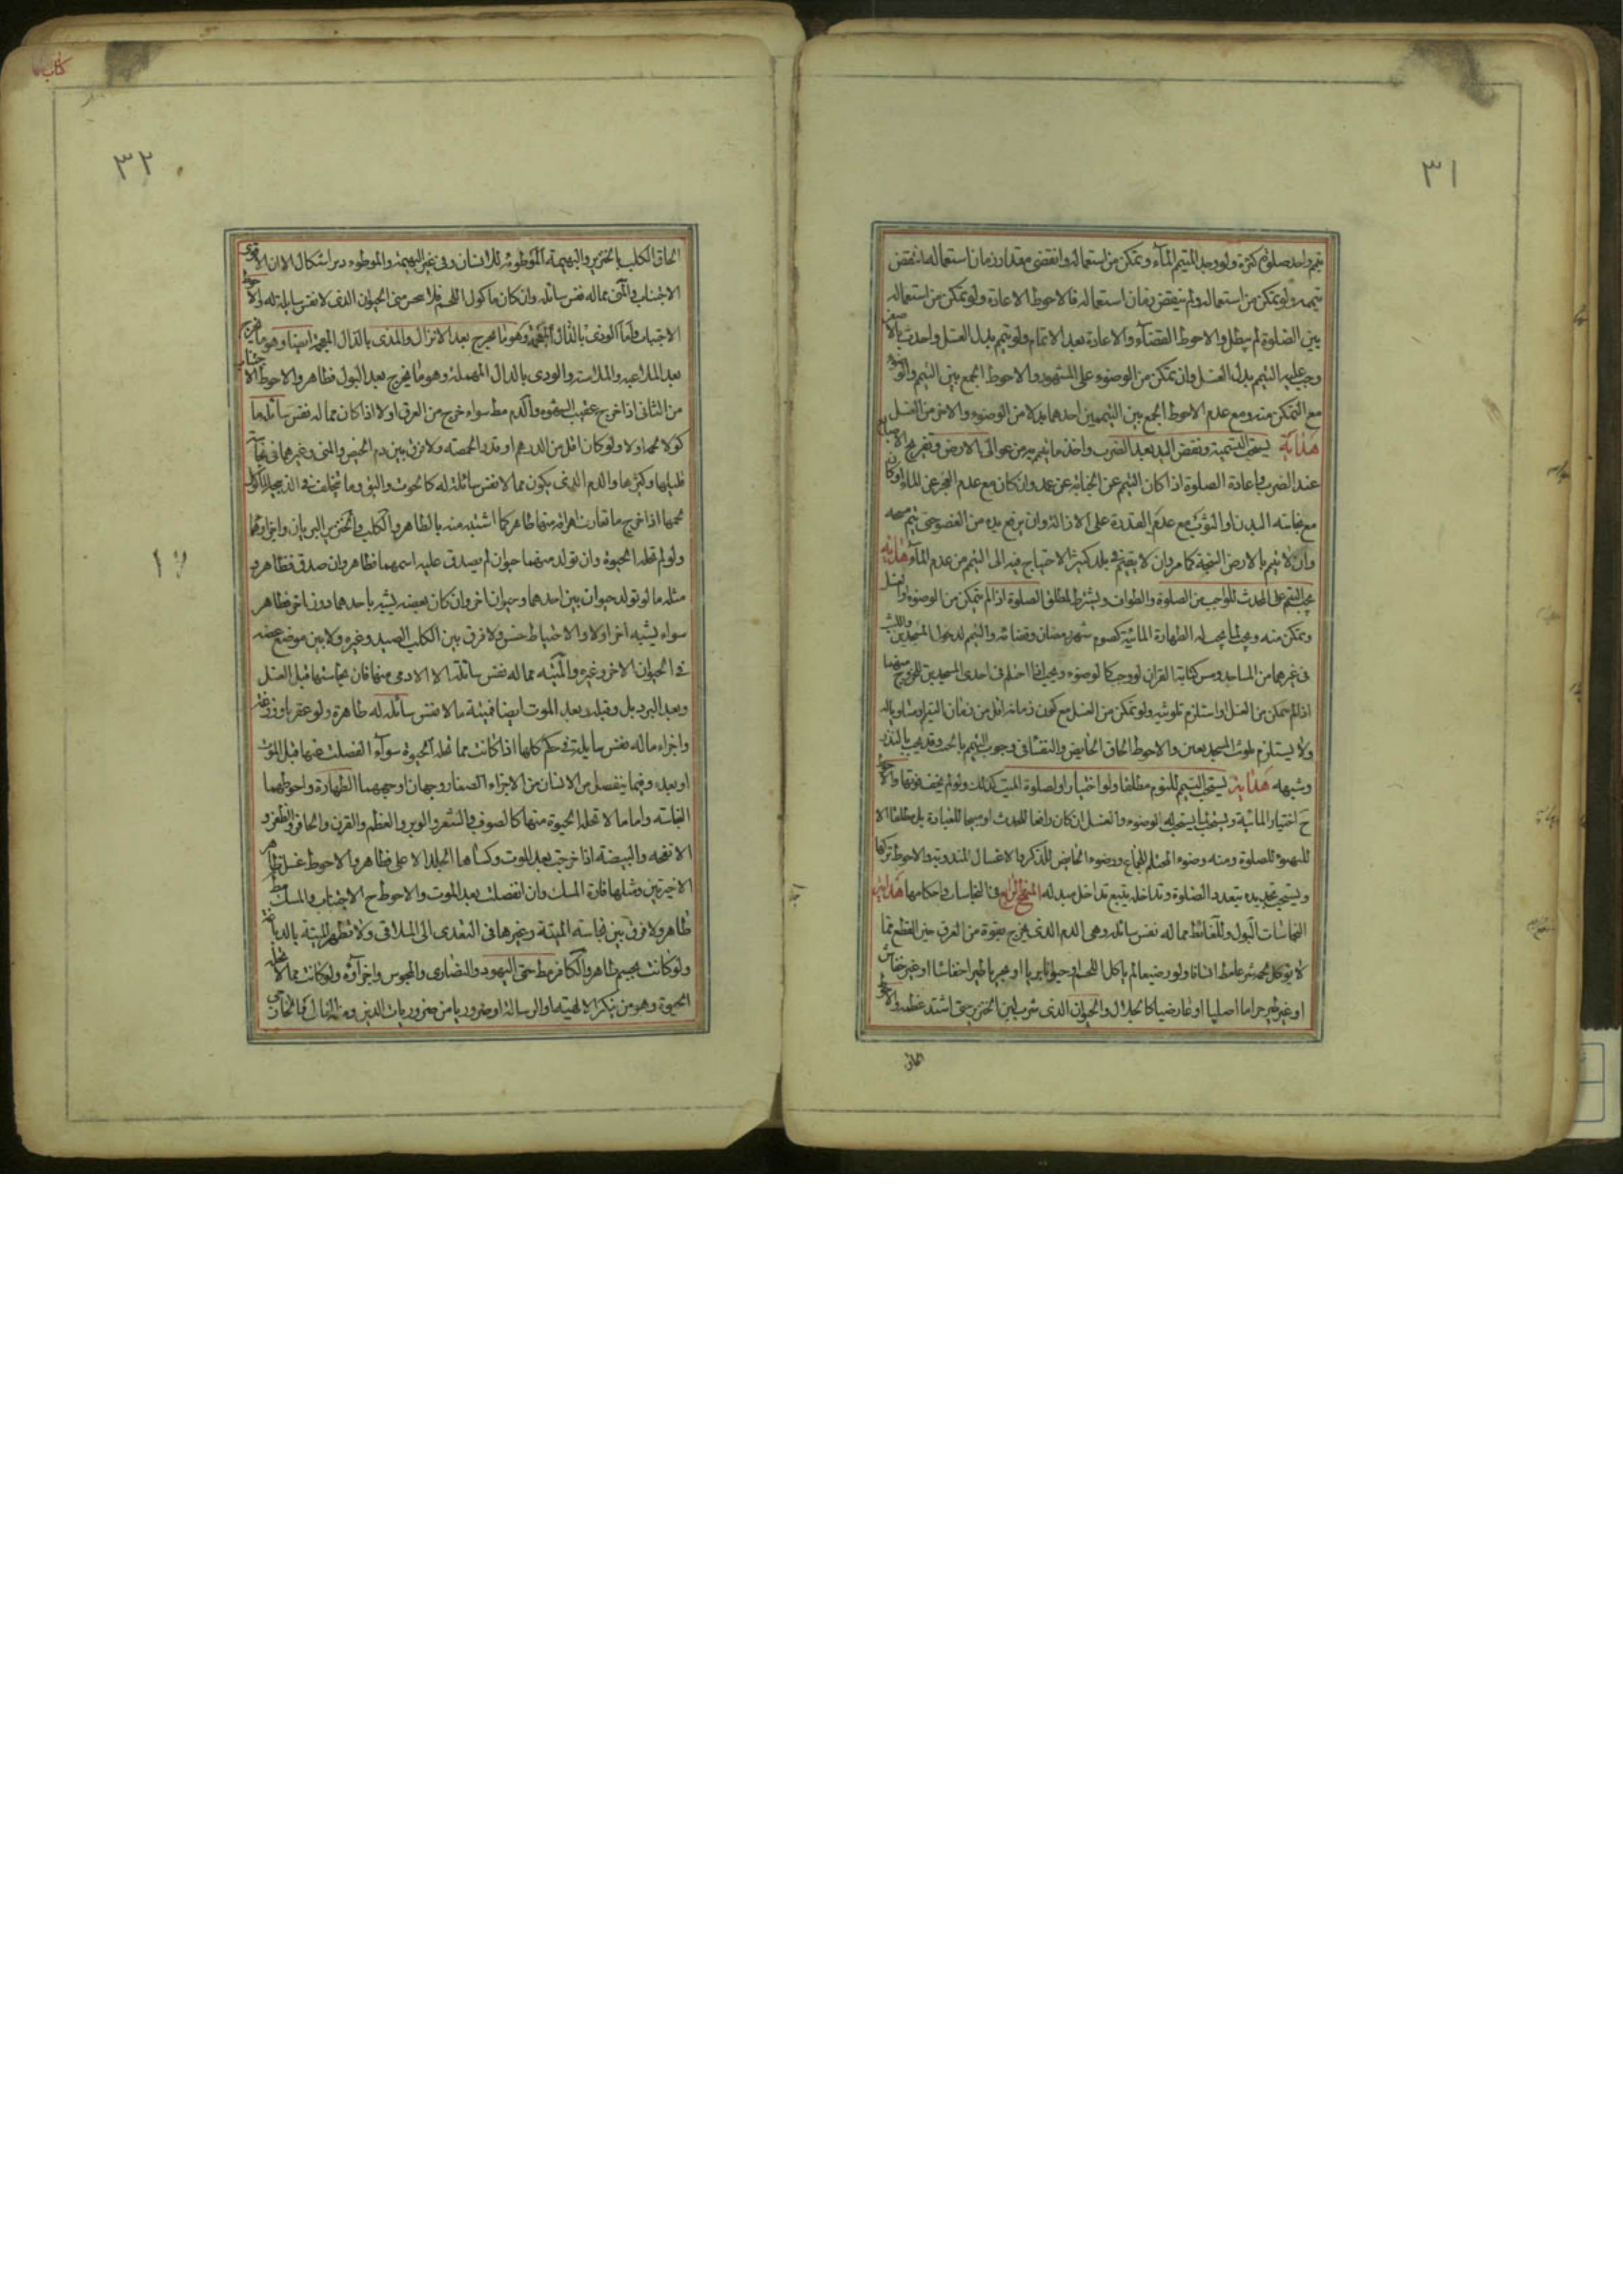 ٣١
تيمم واحد صلوة كثيرة ولو وجد المتيمم الماء وتمكن من استعماله وانقضى مقدار زمان استعماله انتقض
تيممه ولو تمكن من استعماله ولم ينقض زمان استعماله فالاحوط الاعادة ولو تمكن من استعماله
بين الصلوة لم يبطل والاحوط القضاء والاعادة بعد الاتمام ولو تيمم بدل الغسل واحدث بالاصغر
وجب عليه التيمم بدل الغسل وان تمكن من الوضوء على المشهور والاحوط الجمع بين التيمم والوضوء
مع التمكن منه ومع عدم الاحوط الجمع بين التيممين احدهما بدلا من الوضوء والاخر من الغسل
هداية يستحب التسمية ونفض اليد بعد الضرب واخذ ما يتيمم به من عوالى الارض وتفريج الاصابع
عند الضرب واعادة الصلوة اذا كان التيمم عن الجنابة عن عمد وان كان مع عدم العجز عن الماء او كان
مع نجاسة البدن او الثوب مع عدم القدرة على الازالة وان يرفع يده من العضو حتى يتم مسحه
وان لا يتيمم بالارض السبخة كما مر وان لا يقيم فى بلد كثير الاحتياج فيه الى التيمم من عدم الماء هداية
يجب التيمم على المحدث للواجب من الصلوة والطواف ويشترط لمطلق الصلوة اذا لم يتمكن من الوضوء او الغسل
وتمكن منه ويجب لما يجب له الطهارة المائية كصوم شهر رمضان وقضائه والتيمم لدخول المسجدين واللبث
فى غيرهما من المساجد ومس كتابة القران لو وجب كالوضوء ويجب اذا احتلم فى احدى المسجدين للخروج منهما
اذا لم يتمكن من الغسل او استلزم تلويثه ولو تمكن من الغسل مع كون زمانه اقل من زمان التيمم او مساويا له
ولا يستلزم تلويث المسجد يعين والاحوط الحاق الحايض والنفساء فى وجوب التيمم بالجنب وقد يجب بالنذر
وشبهه هداية يستحب التيمم للنوم مطلقا ولو اختيارا ولصلوة الميت كذلك ولو لم يخف فوتها والاحوط
ح اختيار المائية ويستحب لما يستحب له الوضوء والغسل ان كان رافعا للحدث او مبيحا للعبادة بل مطلقا الا
للتهيؤ للصلوة ومنه وضوء المحتلم للجماع ووضوء الحايض للذكر والاغسال المندوبة والاحوط تركها
ويستحب تجديده بتعدد الصلوة وتداخله يتبع تداخل مبدله المنهج الرابع فى النجاسات واحكامها هداية
النجاسات البول والغائط مما له نفس سائلة وهى الدم الذى يخرج بقوة من العرق حين القطع مما
لا يؤكل لحمه شرعا مط انسانا ولو رضيعا لم ياكل اللحم او حيوانا بريا او بحريا طيرا خفاشا او غير خفاش
او غير طير حراما اصليا او عارضيا كالجلال والحيوان الذى شرب لبن الخنزير حتى اشتد عظمه والاحوط
الحاق
٣٢
الحاق الكلب بالخنزير والبهيمة الموطوئة للانسان وفى غير البهيمة والموطوء دبرا اشكال الا ان الاقوى
الاجتناب والمنى مما له نفس سائلة وان كان ماكول اللحم فلا ينجس منى الحيوان الذى لا نفس سايلة له والاحوط
الاجتناب واما الوذى بالذال المعجمة وهو ما يخرج بعد الانزال والمذى بالذال المعجمة ايضا وهو ما يخرج
بعد الملاعبة والملامسة والودى بالدال المهملة وهو ما يخرج بعد البول فطاهر والاحوط الاجتناب
من الثانى اذا خرج عقيب الشهوة والدم مط سواء خرج من العرق او لا اذا كان مما له نفس سائلة ما
كولا لحمه اولا ولو كان اقل من الدرهم او قدر الحمصة ولا فرق بين دم الحيض والمنى وغيرهما فى نجاسة
قليلها وكثيرها والدم الذى يكون مما لا نفس سائلة له كالحوت والبق وما تخلف فى الذبيحة الماكول
لحمها اذا خرج ما تعارف اهراقه منها طاهر كما اشتبه منه بالطاهر والكلب والخنزير البريان واجزاؤهما
ولو لم تحله الحيوة وان تولد منهما حيوان لم يصدق عليه اسمهما فطاهر وان صدق فظاهر و
مثله ما لو تولد حيوان بين احدهما وحيوان اخر وان كان بعضه يشبه باحدهما دون اخر فطاهر
سواء يشبه اخر اولا والاحتياط حسن ولا فرق بين الكلب الصيد وغيره ولا بين موضع عضه
فى الحيوان الاخر وغيره والميتة مما له نفس سائلة الا الادمى منها فان نجاستها قبل الغسل
وبعد البرد بل وقبله وبعد الموت ايضا فميتة ما لا نفس سائلة له طاهرة ولو عقربا ووزغة
واجزاء ماله نفس سايلة فى حكم كلها اذا كانت مما تحله الحيوة سواء انفصلت عنها قبل الموت
او بعده وفيما ينفصل من الانسان من الاجزاء الصغار وجهان اوجههما الطهارة واحوطهما
النجاسة واما ما لا تحله الحيوة منها كالصوف والشعر والوبر والعظم والقرن والحافر والظفر و
الانفحة والبيضة اذا خرجت بعد الموت وكساها الجلد الاعلى فطاهر والاحوط غسل ظاهر
الاخيرتين ومثلها فارة المسك وان انفصلت بعد الموت والاحوط ح الاجتناب والمسك مط
طاهر ولا فرق بين نجاسة الميتة وغيرها فى التعدى الى الملاقى ولا تطهر الميتة بالدباغة
ولو كانت بجسم طاهر والكافر مط حتى اليهود والنصارى والمجوس واجزآؤه ولو كانت مما لا تحله
الحيوة وهو من ينكر الالهية او الرسالة او ضروريا من ضروريات الدين
١٧